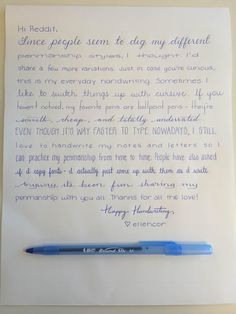 Hi Reddit,
Since people seem to dig my different
penmanship styles, I thought I'd
share a few more variations. Just in case you're curious,
this is my everyday handwriting. Sometimes I
like to switch things up with cursive. If you
haven't noticed, my favorite pens are ballpoint pens - they're
smooth, cheap, and totally underrated.
EVEN THOUGH IT'S WAY FASTER TO TYPE NOWADAYS, I STILL
love to handwrite my notes and letters so I
can practice my penmanship from time to time. People have also asked
if I copy fonts - I actually just come up with them as I write.
Anyway, it's been fun sharing my
penmanship with you all. Thanks for all the love!
Happy Handwriting,
♡ eliencor
BIC